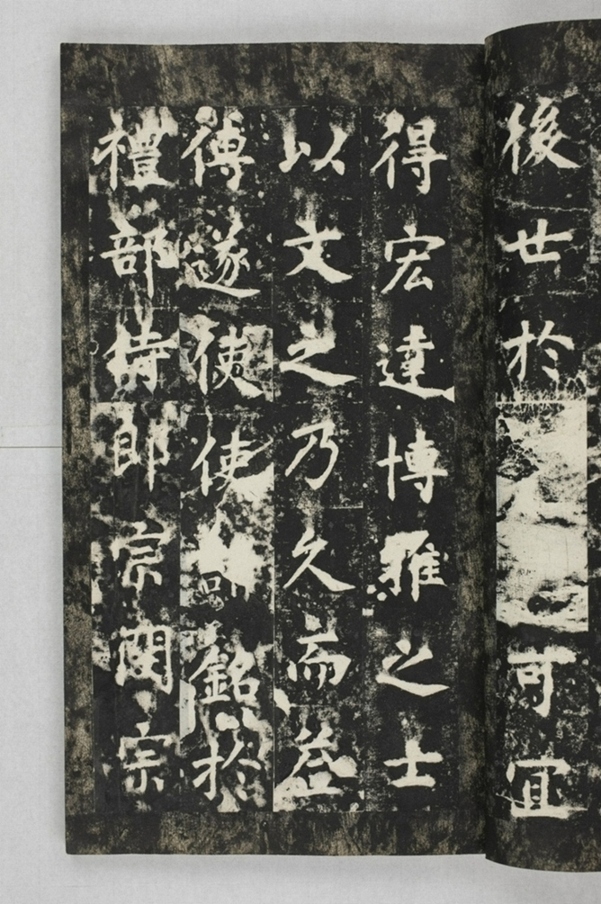 後世於可宜
得宏達博雅之士
以文之乃久而益
傳遂使使詣銘於
禮部侍郎宗閔宗